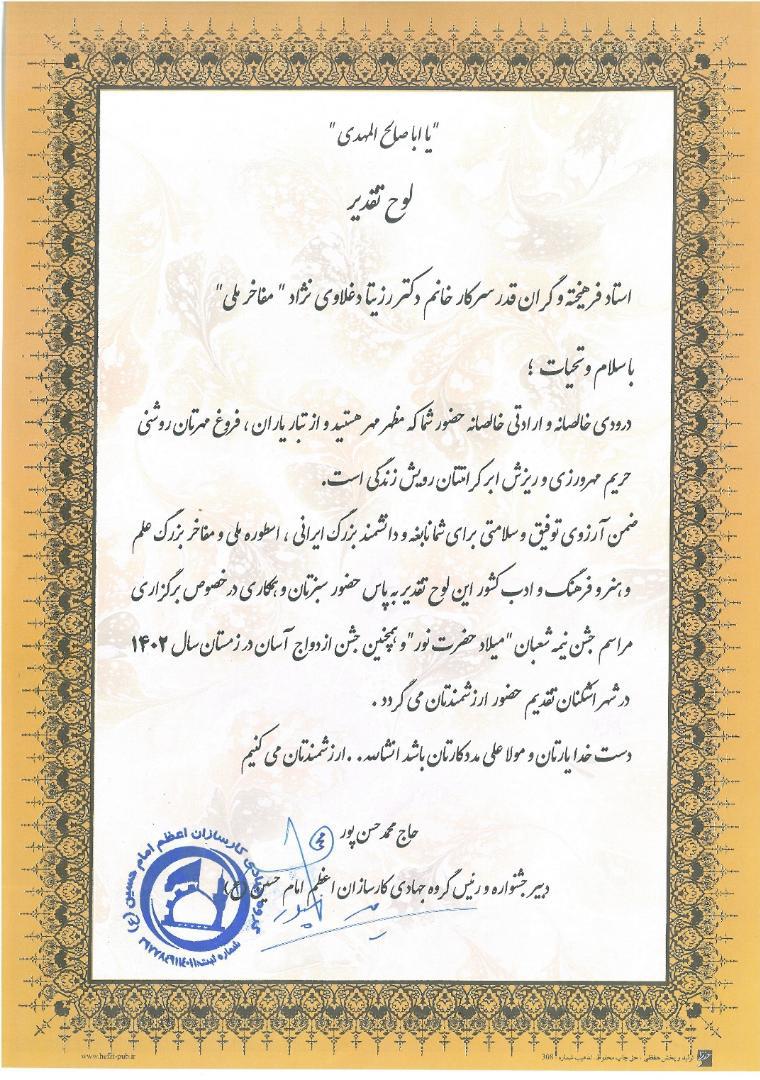 "یا ابا صالح المهدی"
لوح تقدیر
استاد فرهیخته و گران قدر سرکار خانم دکتر رزیتا دغلاوی نژاد "مفاخر ملی"
با سلام و تحیات ؛
درودی خالصانه و ارادتی خالصانه حضور شما که مظهر مهر هستید و از تبار یاران ، فروغ مهرتان روشنی
حریم مهرورزی و ریزش ابر کرامتتان رویش زندگی است.
ضمن آرزوی توفیق و سلامتی برای شما نابغه و دانشمند بزرگ ایرانی ، اسطوره ملی و مفاخر بزرگ علم
و هنر و فرهنگ و ادب کشور این لوح تقدیر به پاس حضور سبزتان و همکاری در خصوص برگزاری
مراسم جشن نیمه شعبان "میلاد حضرت نور" و همچنین جشن ازدواج آسان در زمستان سال ۱۴۰۲
در شهر اشکنان تقدیم حضور ارزشمندتان می گردد .
دست خدا یارتان و مولا علی مددکارتان باشد انشالله . . ارزشمندتان می کنیم
حاج محمد حسن پور
دبیر جشنواره و رئیس گروه جهادی کارسازان اعظم امام حسین (ع)
جهادی کارسازان اعظم امام حسین (ع)
شماره ثبت:
www.hefzi-pub.ir
تولید و پخش حفظی ، حق چاپ محفوظ. تذهیب شماره 308